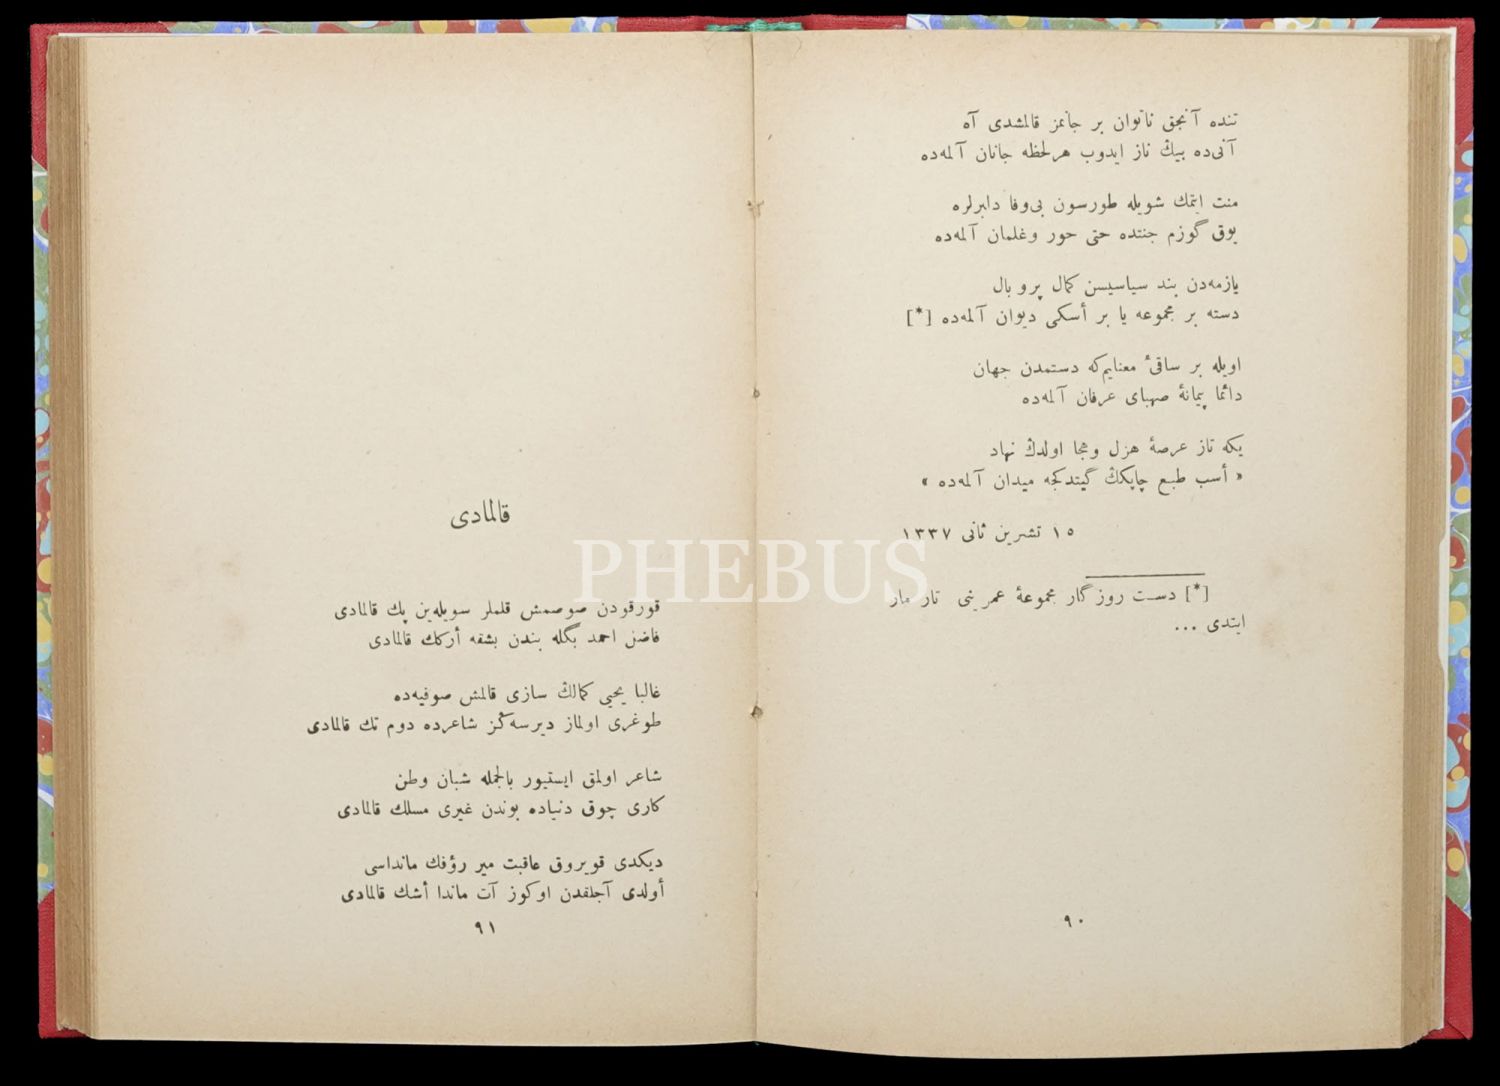 تنده آنجق ناتوان بر جانمز قالمشدی آه
آنی‌ده بیڭ ناز ایدوب هرلحظه جانان آلمه‌ده
منت ایتمك شویله طورسون بی‌وفا دلبرلره
یوق گوزم جنتده حتی حور وغلمان آلمه‌ده
یازمه‌دن بند سیاسیسن کمال پرو بال
دسته بر مجموعه یا بر أسکی دیوان آلمه‌ده [*]
اویله بر ساقیٔ معنایم‌که دستمدن جهان
دائما پیمانهٔ صهبای عرفان آلمه‌ده
یکه تاز عرصهٔ هزل وهجا اولدڭ نهاد
« أسب طبع چاپکڭ گیتدکجه میدان آلمه‌ده »
١٥ تشرین ثانی ١٣٣٧
[*] دست روزگار مجموعهٔ عمرینی تارمار
ایتدی ...
٩٠
قالمادی
قورقودن صوصمش قلملر سویله‌ین پك قالمادی
فاضل احمد بگله بندن بشقه أركك قالمادی
غالبا یحیی کمالڭ سازی قالمش صوفیه‌ده
طوغری اولماز دیرسه‌ڭز شاعرده دوم تك قالمادی
شاعر اولمق ایستیور بالجمله شبان وطن
کاری چوق دنیاده بوندن غیری مسلك قالمادی
دیکدی قویروق عاقبت میر رؤفك مانداسی
أولدی آجلقدن اوکوز آت ماندا أشك قالمادی
٩١
PHEBUS